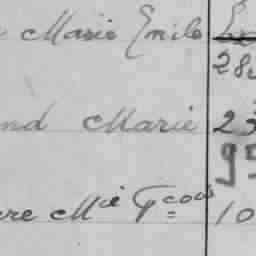 Marie Emile
28
nd Marie 23
95
re Mie Fçois 10